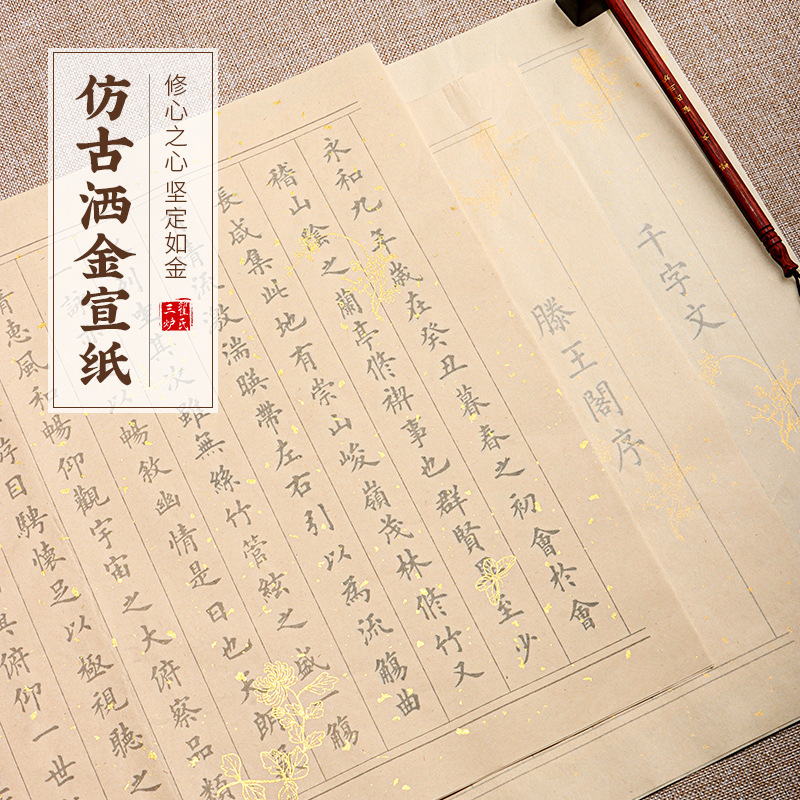 仿古洒金宣纸
修心之心 坚定如金
翟氏
三炉
千字文
滕王閣序
永和九年歲在癸丑暮春之初會於會
稽山陰之蘭亭修禊事也群賢至少
長咸集此地有崇山峻嶺茂林修竹又
有流激湍暎帶左右引以為流觴曲
列坐其次雖無絲竹管絃之盛一觴
一詠以暢敘幽情是日也天朗
清惠風和暢仰觀宇宙之大俯察品類
遊目騁懷足以極視聽之
其俯仰一世